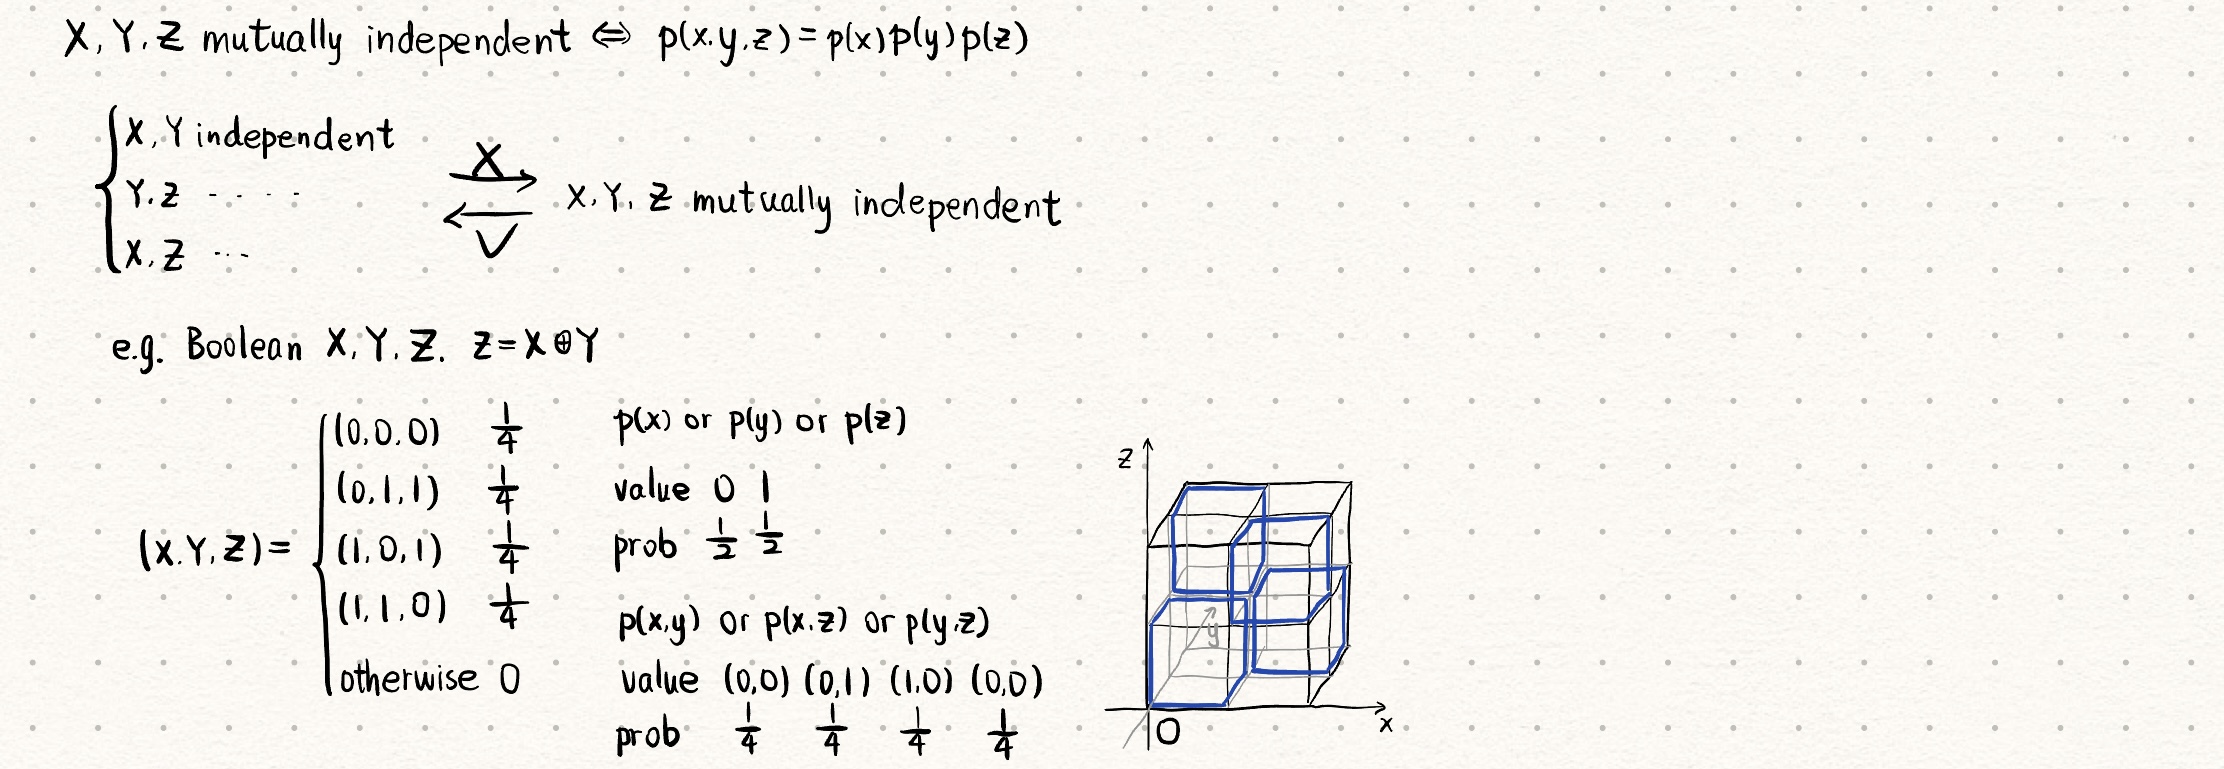 X, Y, Z mutually independent ⇔ p(x,y,z) = p(x)p(y)p(z)
X, Y independent
Y, Z - - - -
X, Z ---
X
→
←
V
X, Y, Z mutually independent
e.g. Boolean X, Y, Z. Z = X ⊕ Y
(X, Y, Z) =
(0,0,0) 1/4
(0,1,1) 1/4
(1,0,1) 1/4
(1,1,0) 1/4
otherwise 0
p(x) or p(y) or p(z)
value 0 1
prob 1/2 1/2
p(x,y) or p(x,z) or p(y,z)
value (0,0) (0,1) (1,0) (0,0)
prob 1/4 1/4 1/4 1/4
z
y
O
x